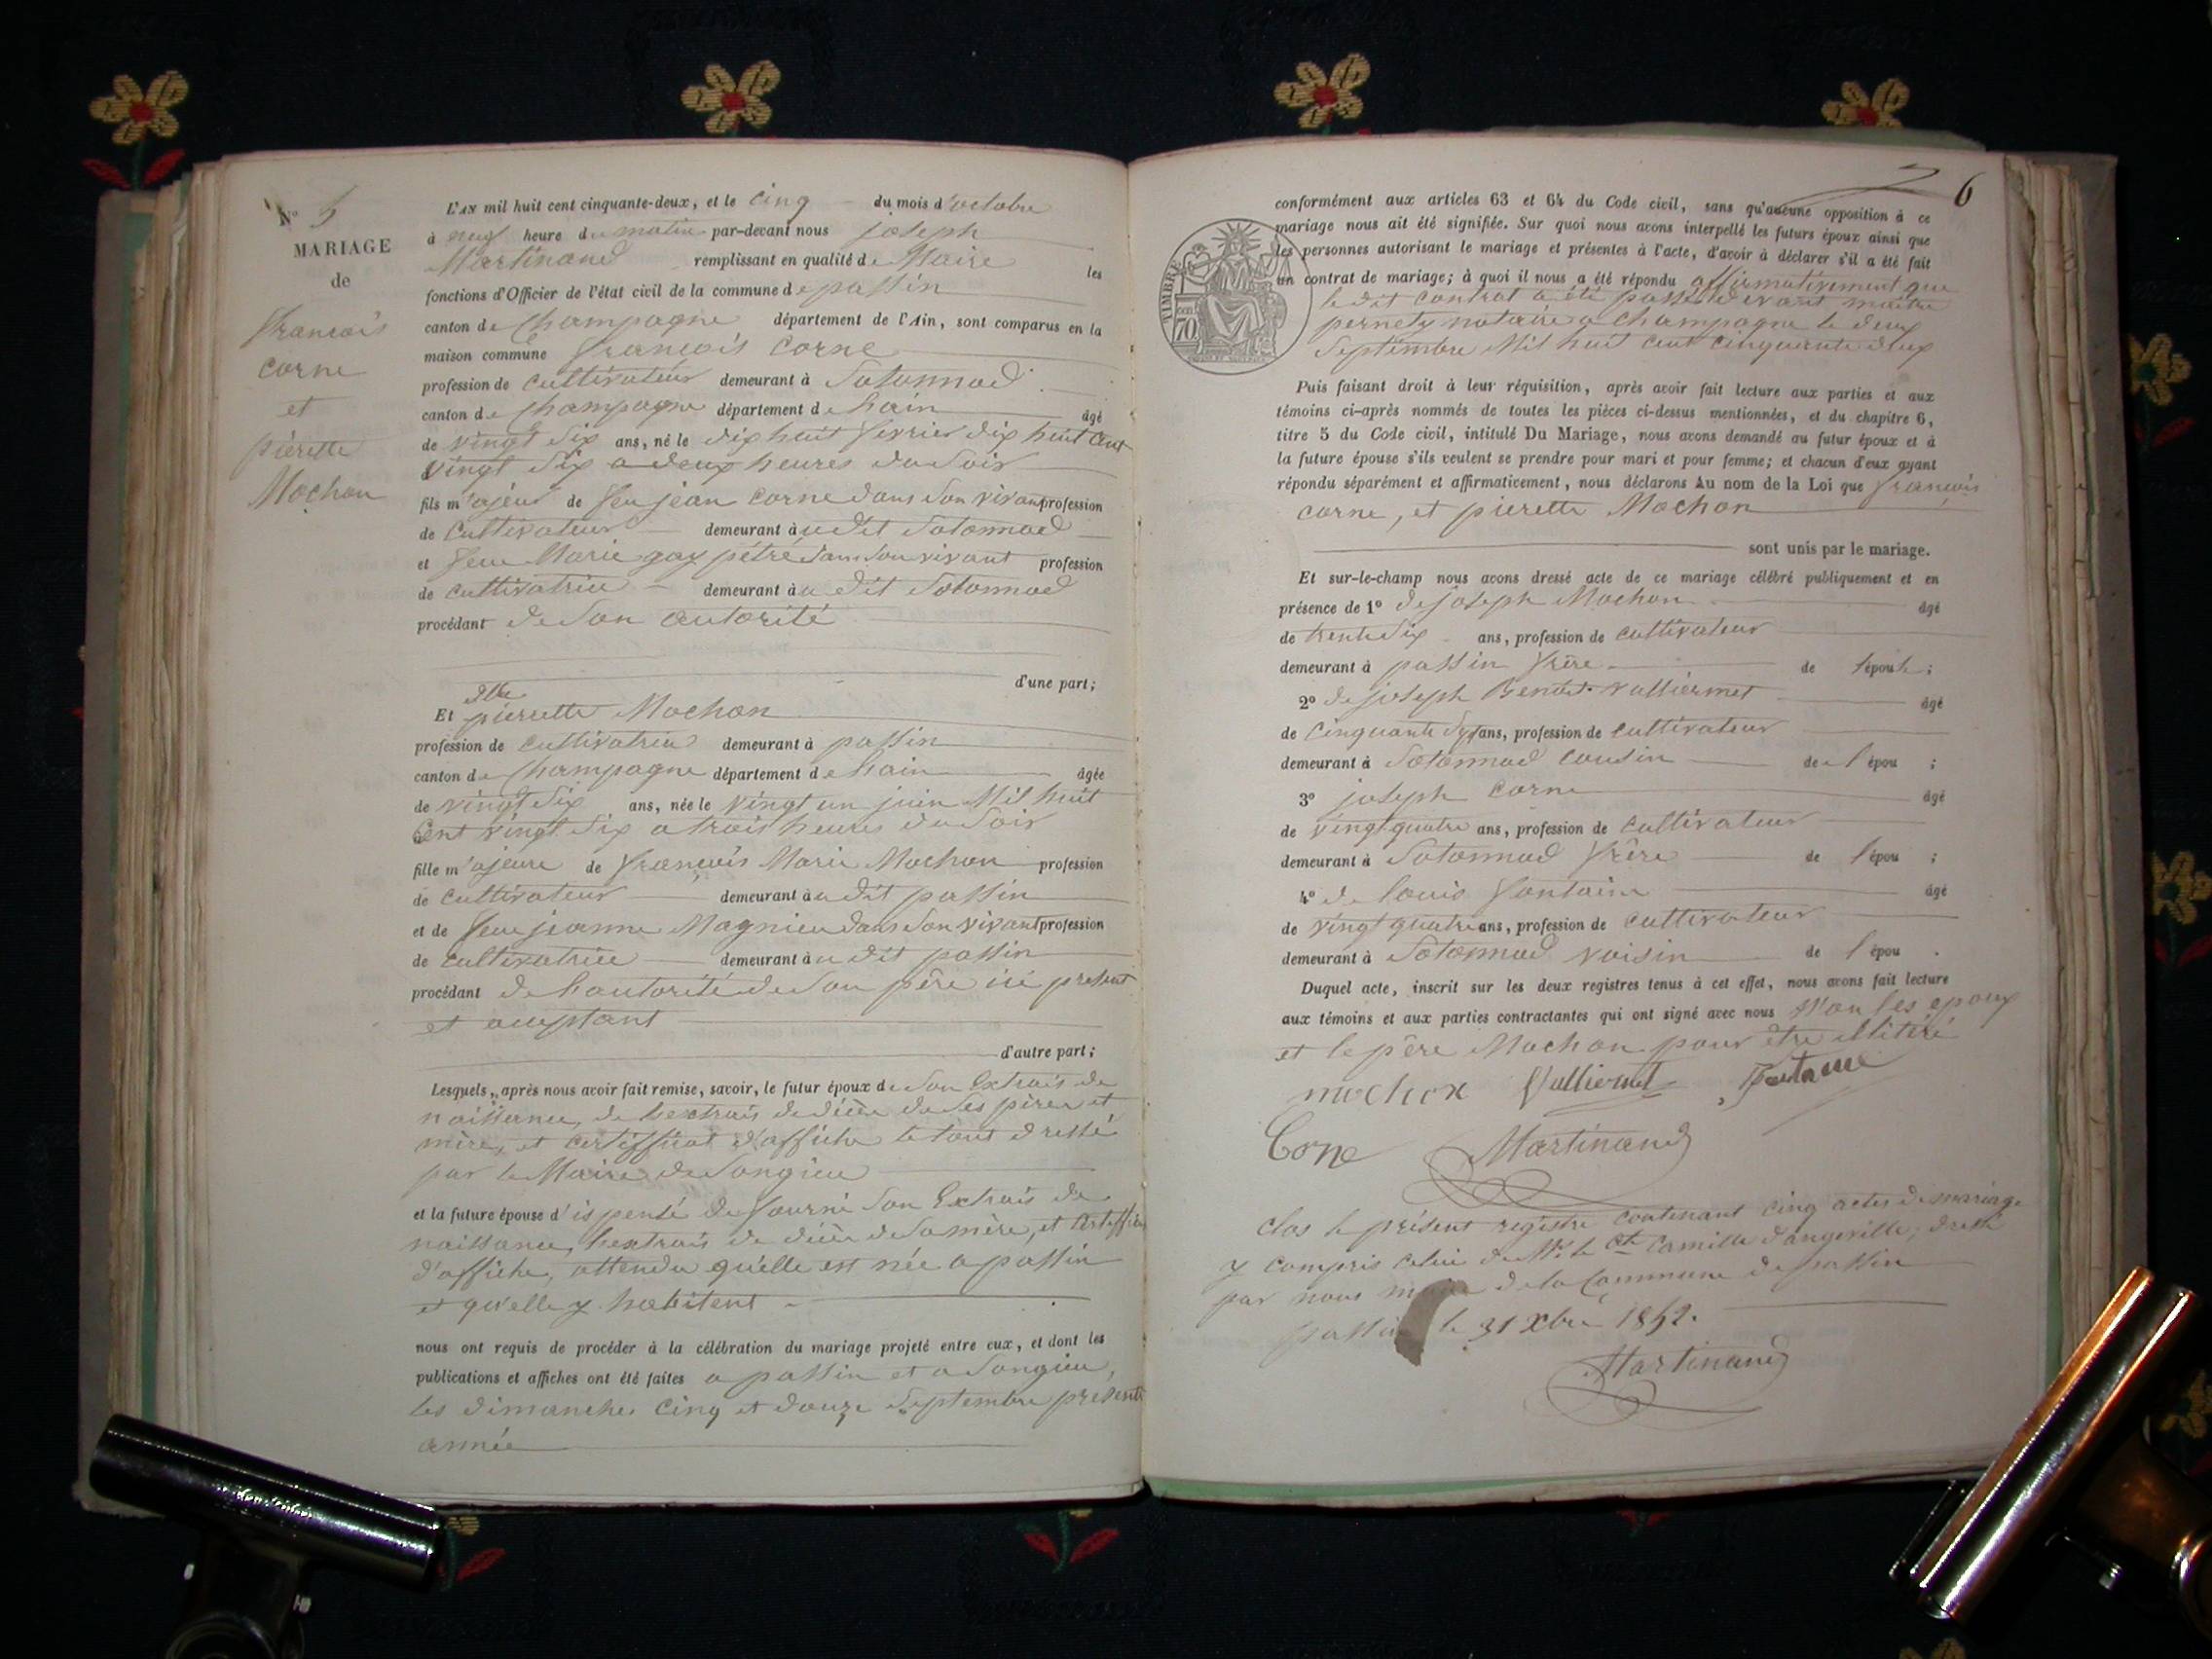 N° 5
MARIAGE
de
françois
Corne
et
pierette
Mochon
L'AN mil huit cent cinquante-deux, et le cinq du mois d'octobre
à neuf heure du matin par-devant nous joseph
Martinand remplissant en qualité de Maire les
fonctions d'Officier de l'état civil de la commune de passin
canton de Champagne département de l'Ain, sont comparus en la
maison commune françois Corne
profession de cultivateur demeurant à Sotonnod
canton de Champagne département de hain âgé
de vingt six ans, né le dix huit fevrier dix huit cent
vingt six a deux heures du Soir
fils majeur de feu jean Corne dans son vivant profession
de Cultivateur demeurant àu dit Sotonnod
et feue Marie gay pétré dans son vivant profession
de cultivatrice demeurant àu dit Sotonnod
procédant de Son autorité
d'une part;
Et dlle pierette Mochon
profession de cultivatrice demeurant à passin
canton de Champagne département de hain âgée
de vingt six ans, née le vingt un juin Mil huit
Cent vingt six a trois heures du Soir
fille majeure de françois Marie Mochon profession
de cultivateur demeurant àu dit passin
et de feue jeanne Magnieu dans son vivant profession
de cultivatrice demeurant àu dit passin
procédant de l'autorité de Son père ici présent
et acceptant
d'autre part;
Lesquels, après nous avoir fait remise, savoir, le futur époux de Son Extrait de
naissance, de l'extrait de décès de Ses pères et
mère, et certifficat d'affiche le tout dressé
par le Maire de Songieu
et la future épouse d'ispensé de fourni Son Extrait de
naissance, l'extrait de décès de Sa mère, et Certiffica
d'affiche, attendu qu'elle est née a passin
et qu'elle y habitent
nous ont requis de procéder à la célébration du mariage projeté entre eux, et dont les
publications et affiches ont été faites a passin et a Songieu,
les dimanches cinq et douze Septembre présente
année
6
TIMBRE
70
conformément aux articles 63 et 64 du Code civil, sans qu'aucune opposition à ce
mariage nous ait été signifiée. Sur quoi nous avons interpellé les futurs époux ainsi que
les personnes autorisant le mariage et présentes à l'acte, d'avoir à déclarer s'il a été fait
un contrat de mariage; à quoi il nous a été répondu affirmativement que
le dit contrat a été passé devant maître
pernety notaire a Champagne le deux
Septembre Mil huit cent cinquante deux
Puis faisant droit à leur réquisition, après avoir fait lecture aux parties et aux
témoins ci-après nommés de toutes les pièces ci-dessus mentionnées, et du chapitre 6,
titre 5 du Code civil, intitulé Du Mariage, nous avons demandé au futur époux et à
la future épouse s'ils veulent se prendre pour mari et pour femme; et chacun d'eux ayant
répondu séparément et affirmativement, nous déclarons Au nom de la Loi que françois
corne, et pierette Mochon
sont unis par le mariage.
Et sur-le-champ nous avons dressé acte de ce mariage célébré publiquement et en
présence de 1° de joseph Mochon âgé
de trente Six ans, profession de cultivateur
demeurant à passin frère de l'épouse;
2° de joseph Benoit Vulliermet âgé
de Cinquante ans, profession de cultivateur
demeurant à Sotonnod cousin de l'épou ;
3° joseph Corne âgé
de vingt quatre ans, profession de cultivateur
demeurant à Sotonnod frère de l'épou ;
4° de louis fontaine âgé
de vingt quatre ans, profession de cultivateur
demeurant à Sotonnod voisin de l'épou .
Duquel acte, inscrit sur les deux registres tenus à cet effet, nous avons fait lecture
aux témoins et aux parties contractantes qui ont signé avec nous non les epoux
et le père Mochon pour être illitéré
mochon Vulliermet fontaine
Corne Martinand
Clos le présent registre contenant cinq actes de mariage
y compris celui de Mr. le Cte Camille d'angeville, dressé
par nous maire de la Commune de passin
passin le 31 Xbre 1852.
Martinand